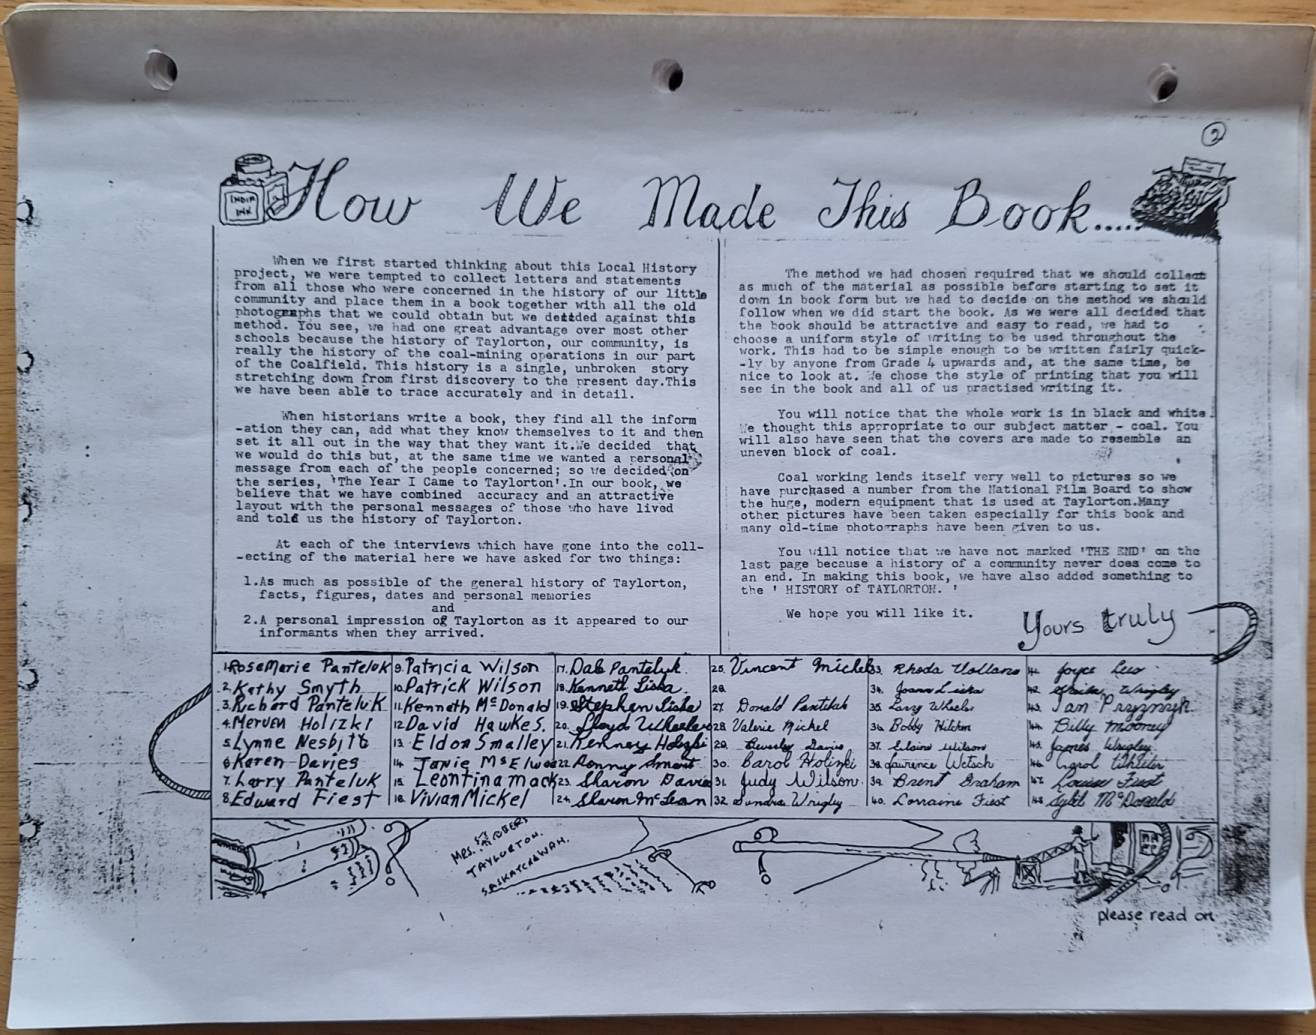 2
INDIA
INK
How We Made This Book.....
When we first started thinking about this Local History
project, we were tempted to collect letters and statements
from all those who were concerned in the history of our little
community and place them in a book together with all the old
photographs that we could obtain but we decided against this
method. You see, we had one great advantage over most other
schools because the history of Taylorton, our community, is
really the history of the coal-mining operations in our part
of the Coalfield. This history is a single, unbroken story
stretching down from first discovery to the present day.This
we have been able to trace accurately and in detail.
When historians write a book, they find all the inform
-ation they can, add what they know themselves to it and then
set it all out in the way that they want it.We decided that
we would do this but, at the same time we wanted a personal
message from each of the people concerned; so we decided on
the series, 'The Year I Came to Taylorton'.In our book, we
believe that we have combined accuracy and an attractive
layout with the personal messages of those who have lived
and told us the history of Taylorton.
At each of the interviews which have gone into the coll-
-ecting of the material here we have asked for two things:
1.As much as possible of the general history of Taylorton,
facts, figures, dates and personal memories
and
2.A personal impression of Taylorton as it appeared to our
informants when they arrived.
The method we had chosen required that we should collect
as much of the material as possible before starting to set it
down in book form but we had to decide on the method we should
follow when we did start the book. As we were all decided that
the book should be attractive and easy to read, we had to
choose a uniform style of writing to be used throughout the
work. This had to be simple enough to be written fairly quick-
-ly by anyone from Grade 4 upwards and, at the same time, be
nice to look at. We chose the style of printing that you will
see in the book and all of us practised writing it.
You will notice that the whole work is in black and white.
We thought this appropriate to our subject matter - coal. You
will also have seen that the covers are made to resemble an
uneven block of coal.
Coal working lends itself very well to pictures so we
have purchased a number from the National Film Board to show
the huge, modern equipment that is used at Taylorton.Many
other pictures have been taken especially for this book and
many old-time photographs have been given to us.
You will notice that we have not marked 'THE END' on the
last page because a history of a community never does come to
an end. In making this book, we have also added something to
the ' HISTORY of TAYLORTON. '
We hope you will like it.
Yours truly
1.Rosemarie Panteluk
2.Kathy Smyth
3.Richard Panteluk
4.Merven Holizki
5.Lynne Nesbitt
6.Karen Davies
7.Larry Panteluk
8.Edward Fiest
9.Patricia Wilson
10.Patrick Wilson
11.Kenneth McDonald
12.David Hawkes.
13. Eldon Smalley
14. Janie McElwee
15. Leontina Mack
16. Vivian Mickel
17. Dale Panteluk
18. Kenneth Liska
19. Stephen Liska
20. Lloyd Wheeler
21. Kennery Holizki
22. Ronny Smart
23. Sharon Davies
24. Sharon McLean
25. Vincent Mickel
26.
27. Donald Panteluk
28. Valerie Mickel
29. Beverley Davis
30. Carol Holizki
31. Judy Wilson
32. Sandra Wrigley
33. Rhoda
34. Joann Liska
35. Larry Wheeler
36. Bobby Kitchen
37. Elaine Wilson
38. Lawrence Wetsch
39. Brent Graham
40. Lorraine Fiest
41. Joyce
42. Wrigley
43. Ian
44. Billy Mooney
45. James Wrigley
46. Carol Wheeler
47. Louise Fiest
48. Sybil McDonald
MRS.
TAYLORTON.
SASKATCHEWAN.
please read on